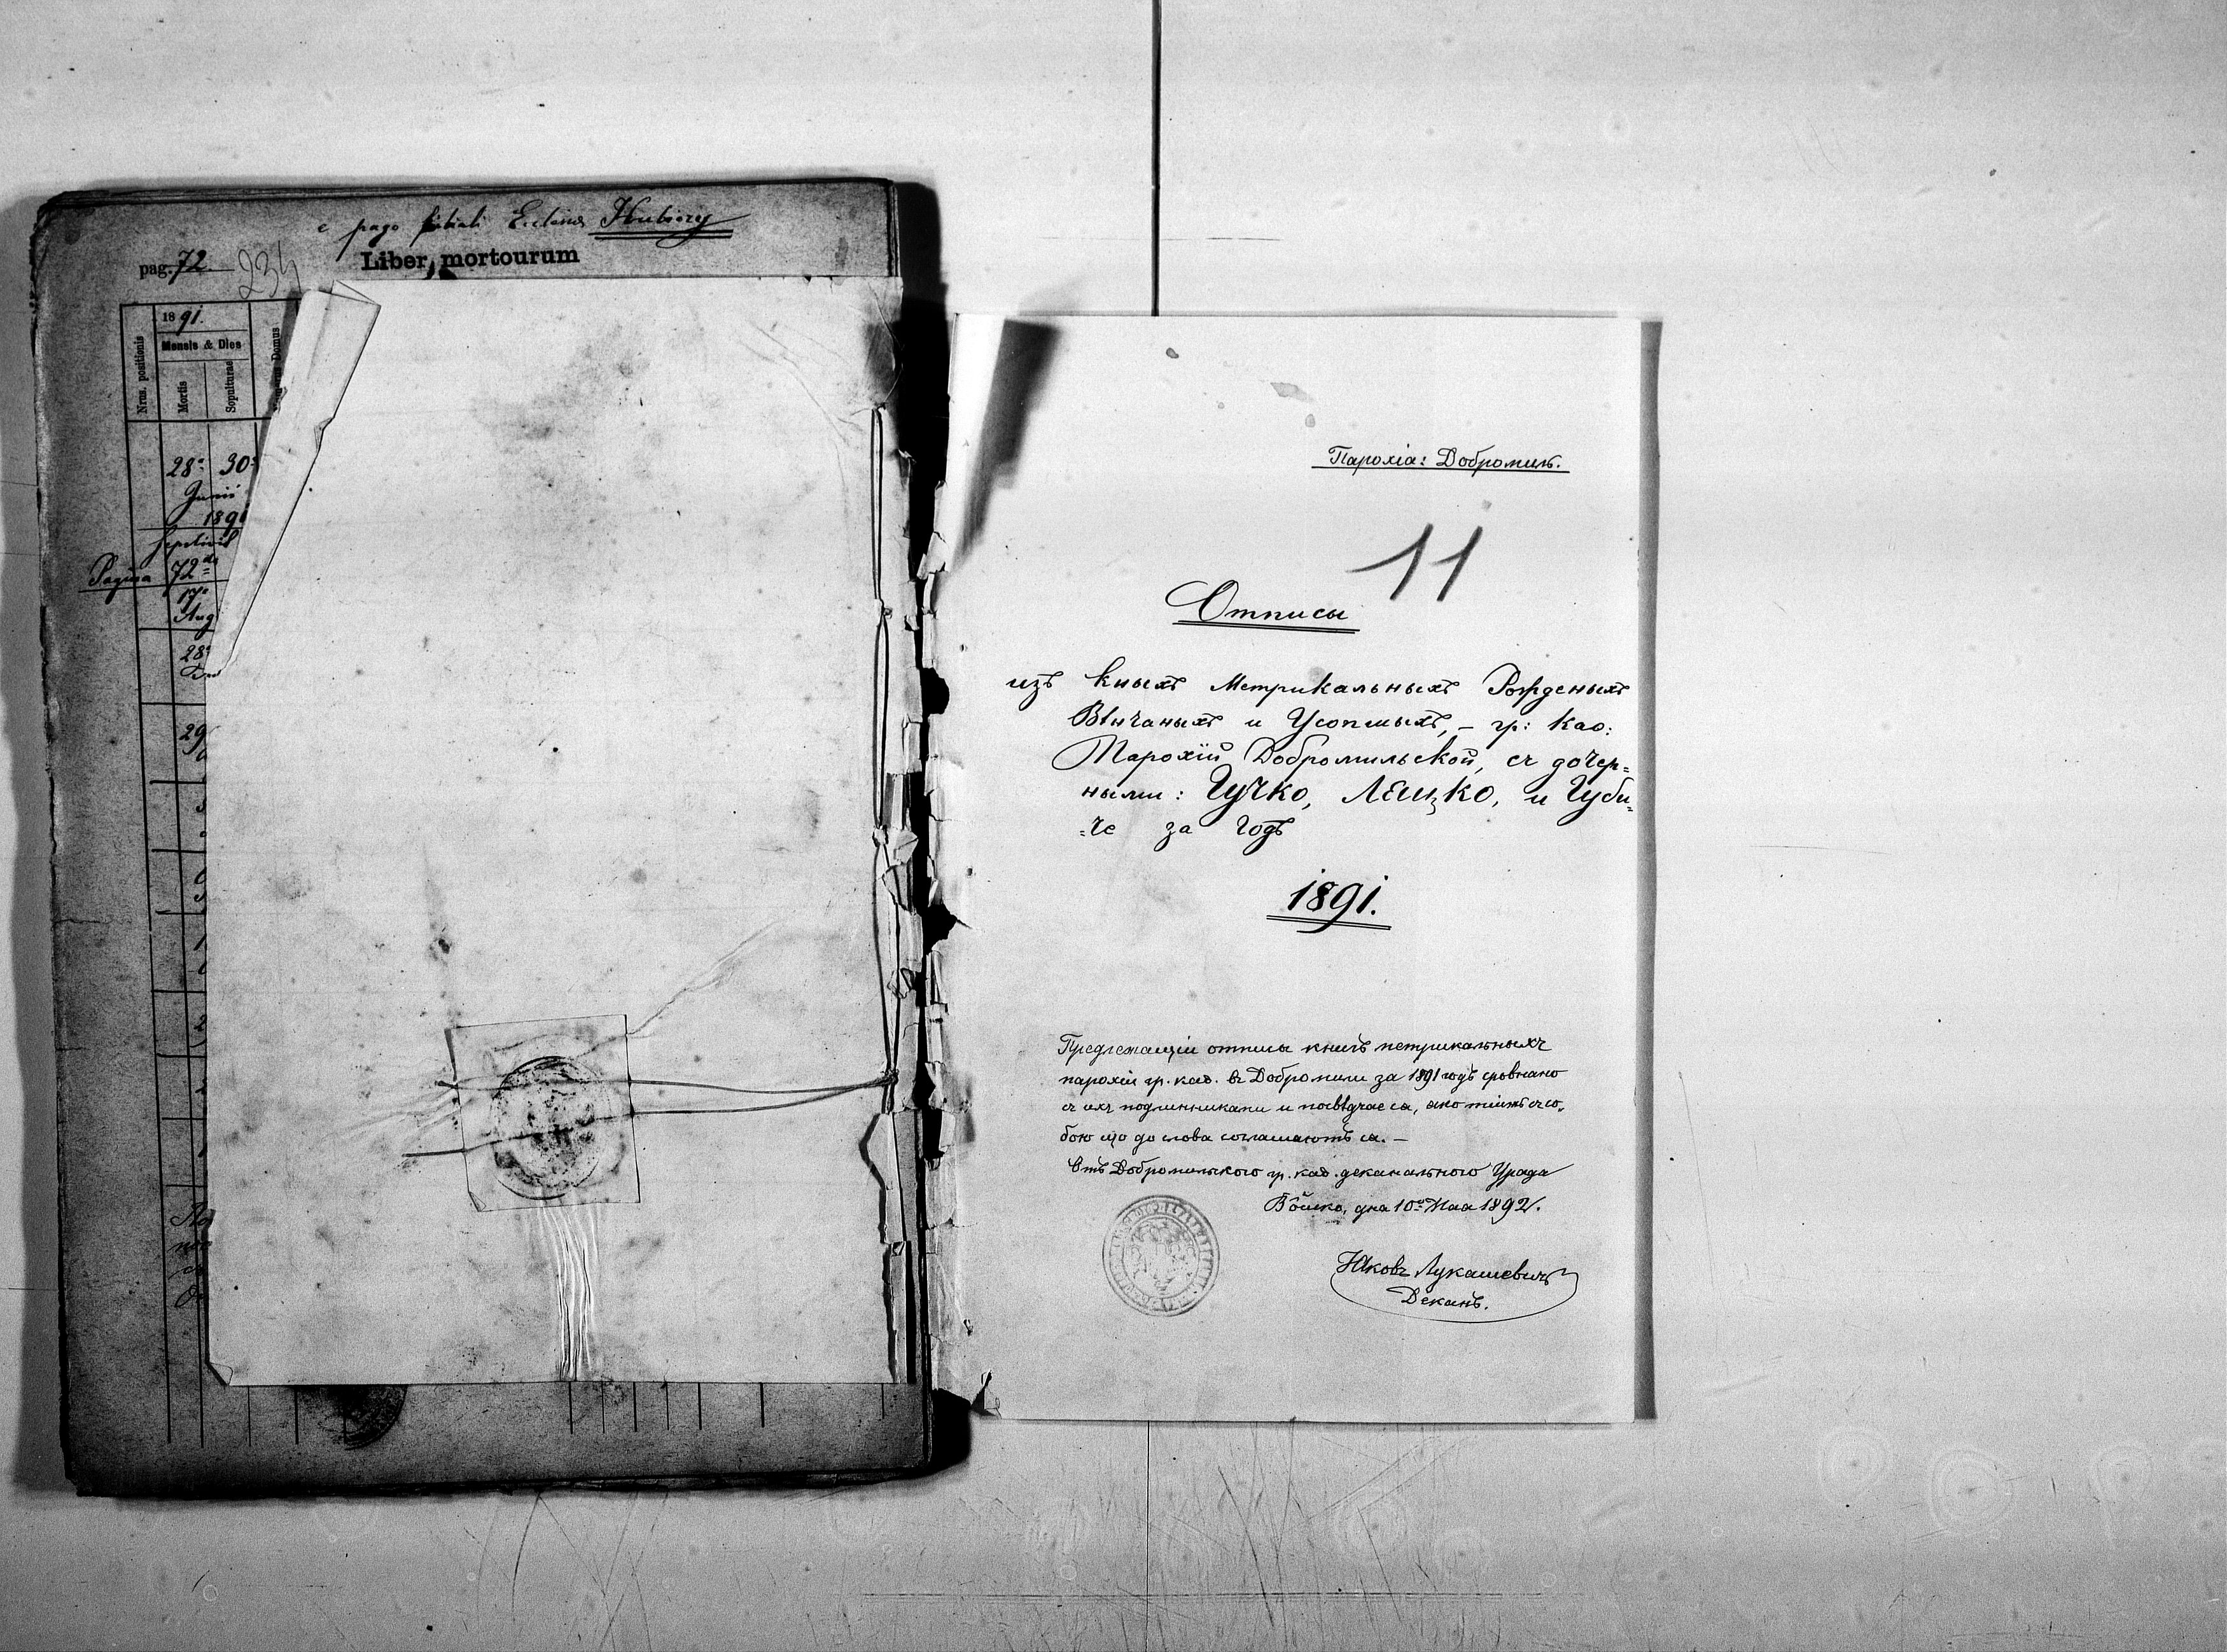 e pago filiali Ecclesiae Hubiczy
pag. 72 234
Liber mortourum
1891.
Mensis & Dies
Nrus. positionis
Mortis
Sepulturae
Domus
28. 30.
Junii
1891
Pagina 72
17
Aug
28
29
Парохіа: Добромиль.
11
Отписы
изъ книхъ Метрикальныхъ Рожденыхъ
Вѣнчаныхъ и Усопшихъ, – гр: каѳ:
Парохїй Добромильской, съ дочер=
ными: Гучко, Ляцко, и Губи=
=че за годъ
1891.
Предлежащіи отписы книгъ метрикальныхъ
парохіи гр. каѳ. въ Добромили за 1891 годъ сровнано
съ ихъ подлинниками и посвѣдчаеса, ако тіижъ съ со„
бою що до слова соглашаютъ са. –
Отъ Добромильского гр. каѳ. деканального Урада
Вôйско, дна 10го Маа 1892.
Іаковъ Лукашевичъ
Деканъ.